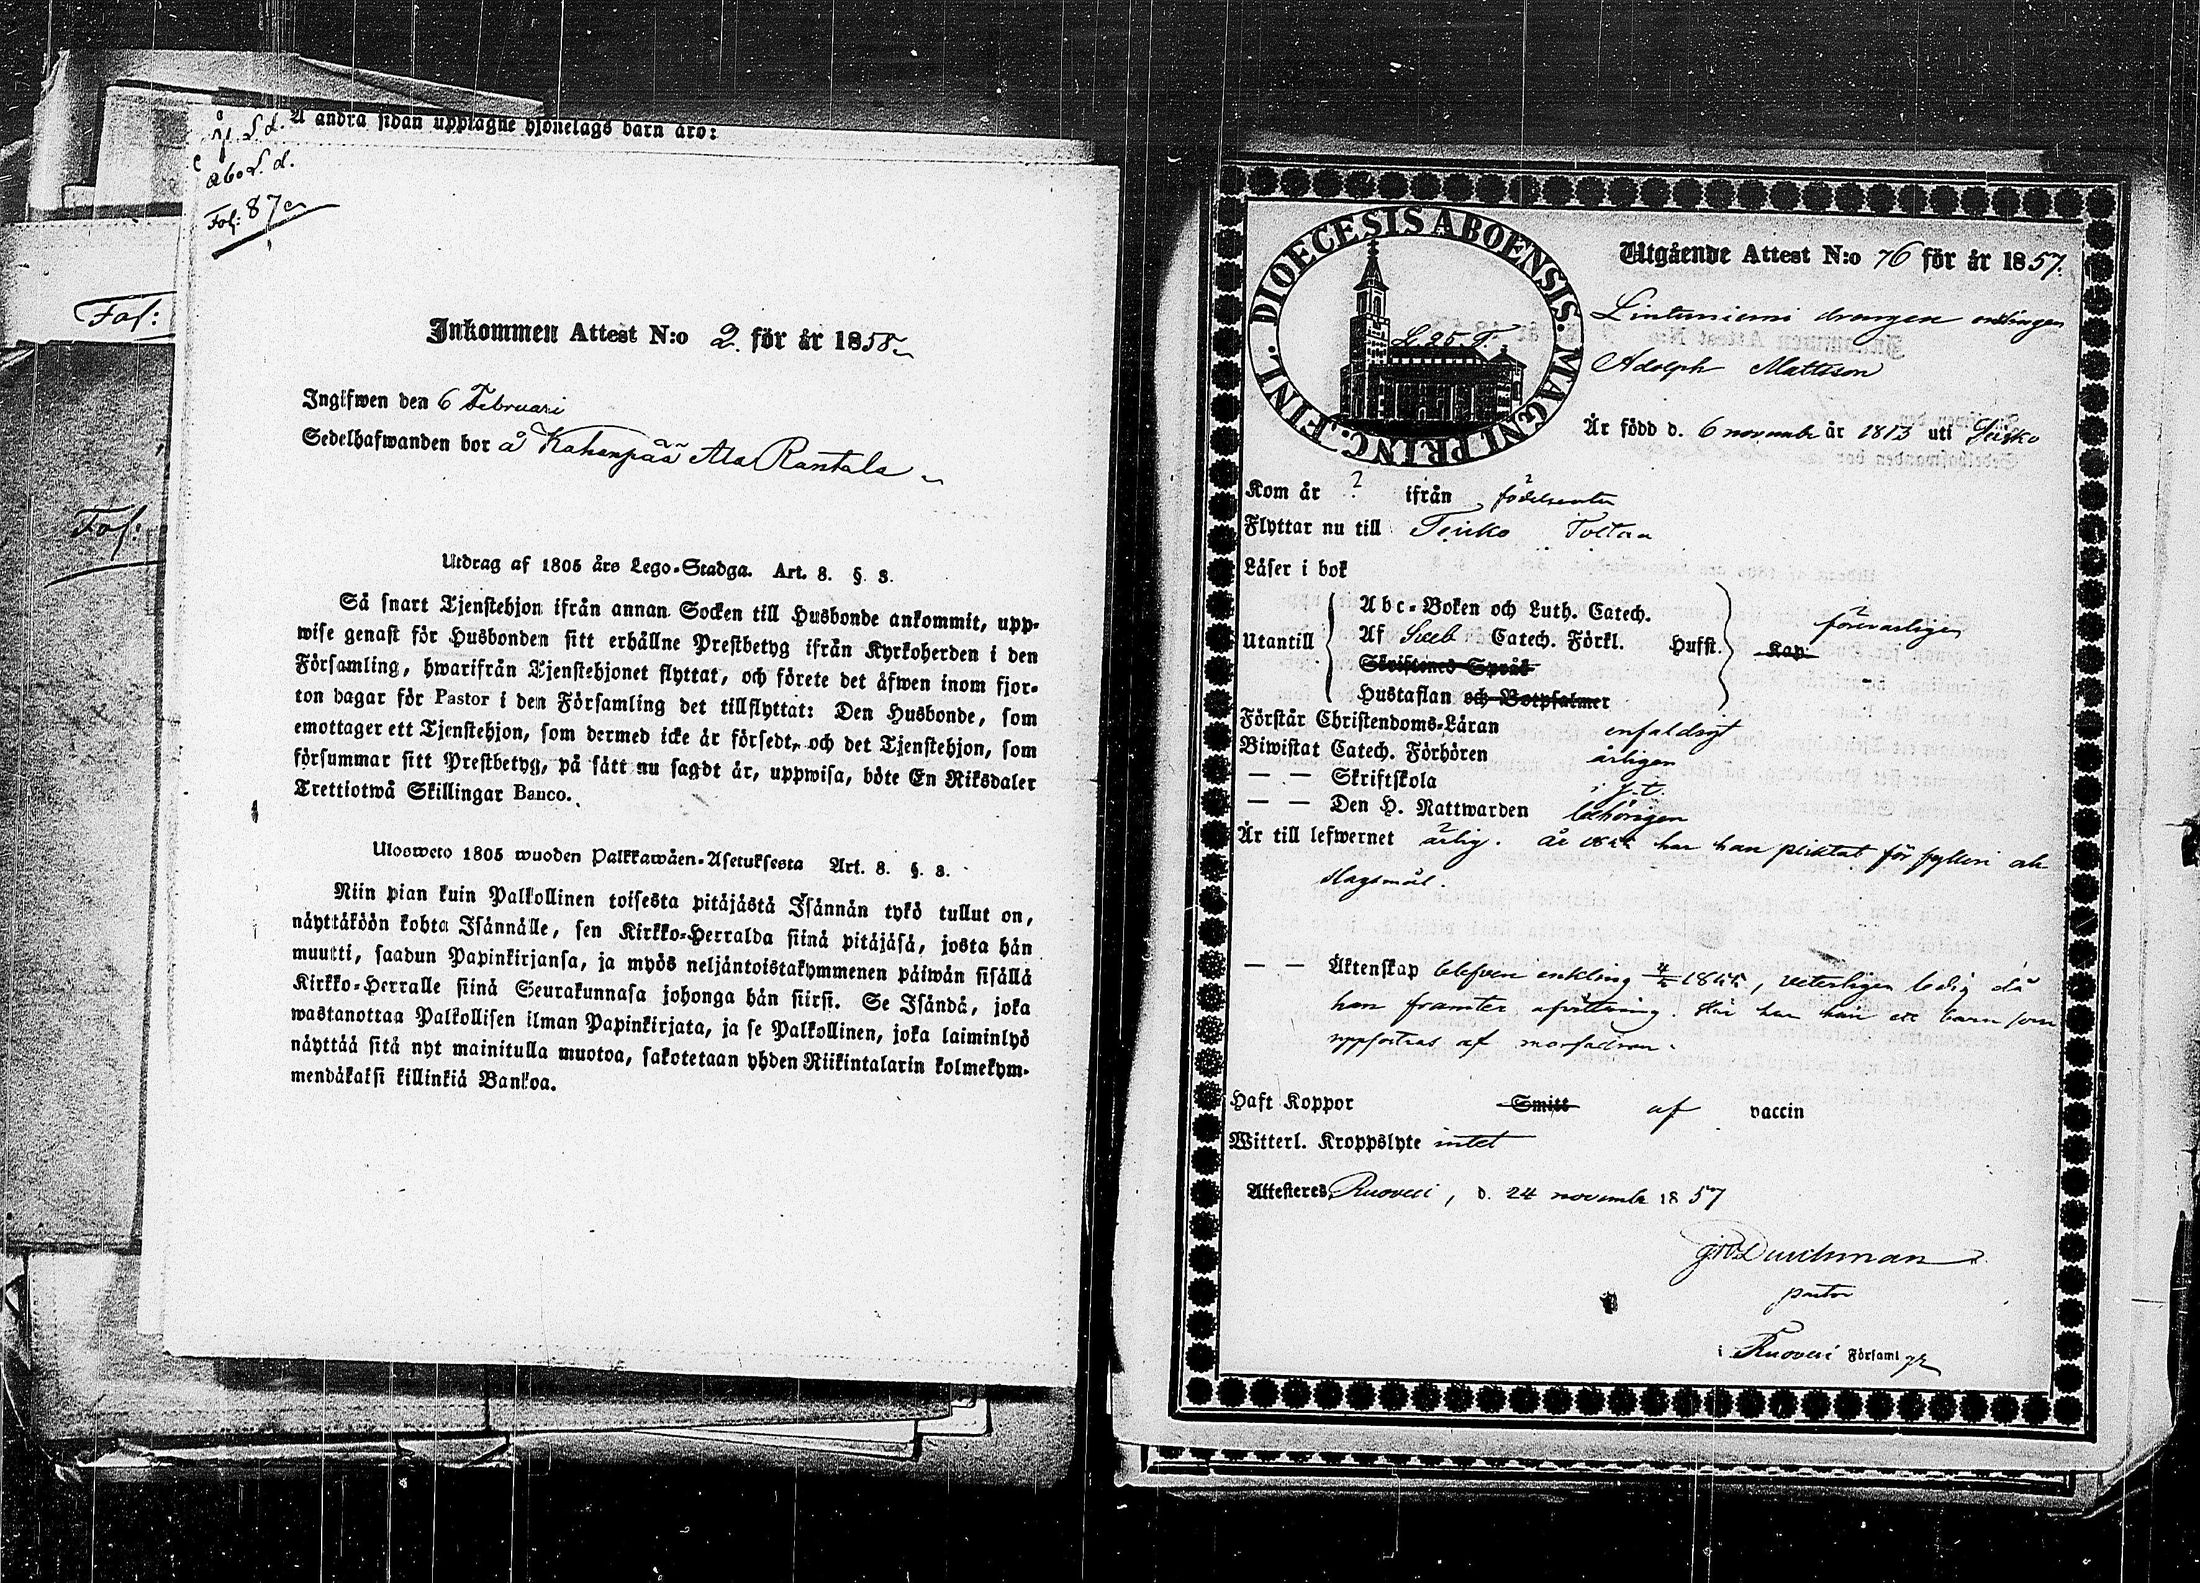 Å andra sidan upptagne hjonelags barn äro:
Fol: 87
Fol:
Fol:
Inkommen Attest N:o 2 för år 1858
Ingifwen den 6 Februari
Sedelhafwanden bor å Kahenpää Ala Rantala
Utdrag af 1805 års Lego-Stadga. Art. 8. §. 3.
Så snart Tjenstehjon ifrån annan Socken till Husbonde ankommit, upp-
wise genast för Husbonden sitt erhållne Prestbetyg ifrån Kyrkoherden i den
Församling, hwarifrån Tjenstehjonet flyttat, och förete det äfwen inom fjor-
ton dagar för Pastor i den Församling det tillflyttat: Den Husbonde, som
emottager ett Tjenstehjon, som dermed icke är försedt, och det Tjenstehjon, som
försummar sitt Prestbetyg, på sätt nu sagdt är, uppwisa, böte En Riksdaler
Trettiotwå Skillingar Banco.
Ulosweto 1805 wuoden Palkkawäen-Asetuksesta Art. 8. §. 3.
Niin pian kuin Palkollinen toisesta pitäjästä Isännän tykö tullut on,
näyttäköön kohta Isännälle, sen Kirkko-Herralda siinä pitäjäsä, josta hän
muutti, saadun Papinkirjansa, ja myös neljäntoistakymmenen päiwän sisällä
Kirkko-Herralle siinä Seurakunnasa johonga hän siirsi. Se Isändä, joka
wastanottaa Palkollisen ilman Papinkirjata, ja se Palkollinen, joka laiminlyö
näyttää sitä nyt mainitulla muotoa, sakotetaan yhden Riikintalarin kolmekym-
mendäkaksi killinkiä Bankoa.
DIOECESIS ABOENSIS. MAGNI PRINC. FINL.
L. 25 F.
Utgående Attest N:o 76 för år 1857.
Lintuniemi drängen enklingen
Adolph Mattsson
Är född d. 6 novembr år 1813 uti Teisko
Kom år ? ifrån födelseorten
Flyttar nu till Teisko
Läser i bok
Utantill
Abc-Boken och Luth. Catech.
Af Sveb Catech. Förkl. Hufst. Kap. försvarligen
Skriftenes Språk
Hustaflan och Botpsalmer
Förstår Christendoms-Läran enfaldigt
Biwistat Catech. Förhören årligen
— — Skriftskola
— — Den H. Nattwarden behörigen
Är till lefwernet ärlig. År har han pliktat för fylleri och
slagsmål.
— — Äktenskap blefven enkling, veterligen ledig då
han framter afvittring. Här har han ett barn som
uppfostras af morfadren.
Haft Koppor Smitt af vaccin
Witterl. Kroppslyte intet
Attesteres Ruovesi, d. 24 novembr 1857
pastor
i Ruovesi Församl